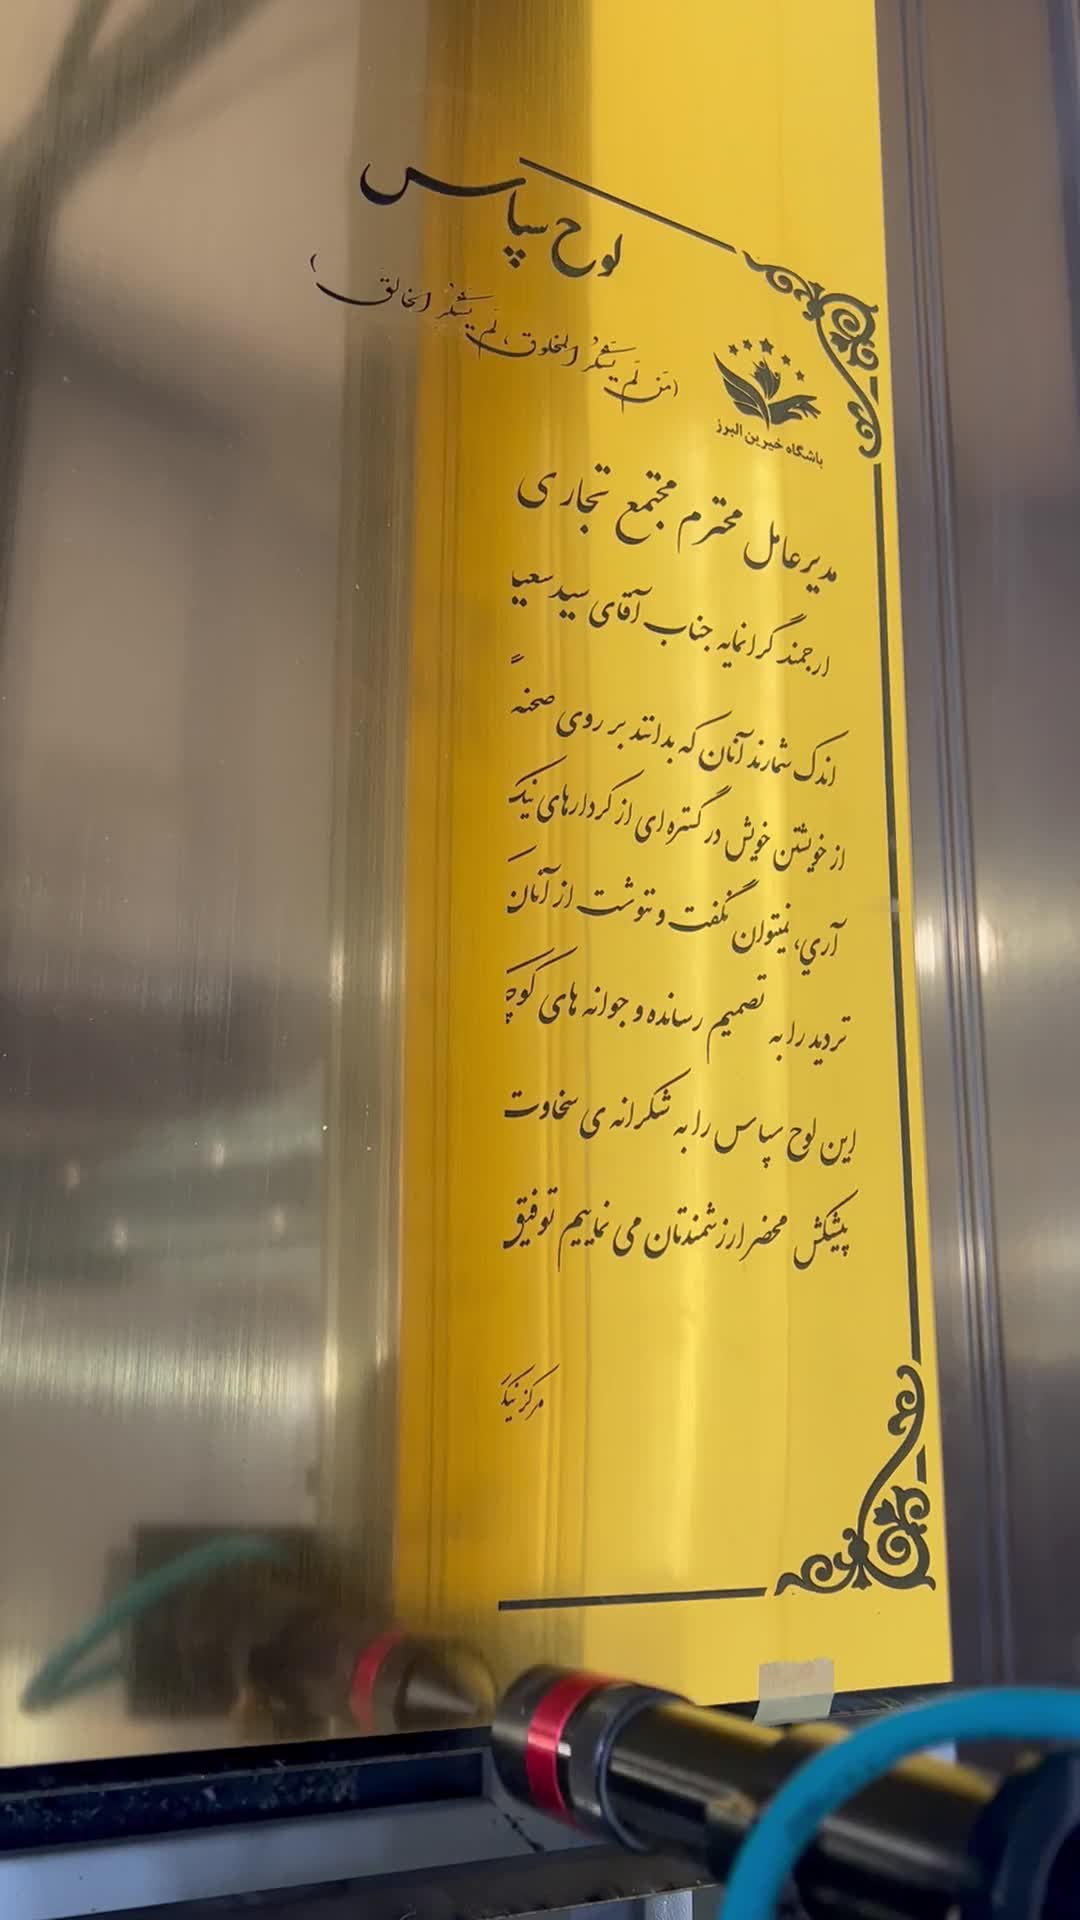 لوح سپاس
(مَن لَم یَشکُرُ المخلوق، لَم یَشکُرُ الخالِق)
باشگاه خیرین البرز
مدیر عامل محترم مجتمع تجاری
ارجمند گرانمایه جناب آقای سید
اندک شمارند آنان که بدانند بر روی صحنه
از خویشتن خویش در گستره ای از کردارهای نیک
آري، نمیتوان نگفت و ننوشت از آنان
تردید را به تصمیم رسانده و جوانه های
این لوح سپاس را به شکرانه ی سخاوت
پیشکش محضر ارزشمندتان می نماییم توفیق
مرکز